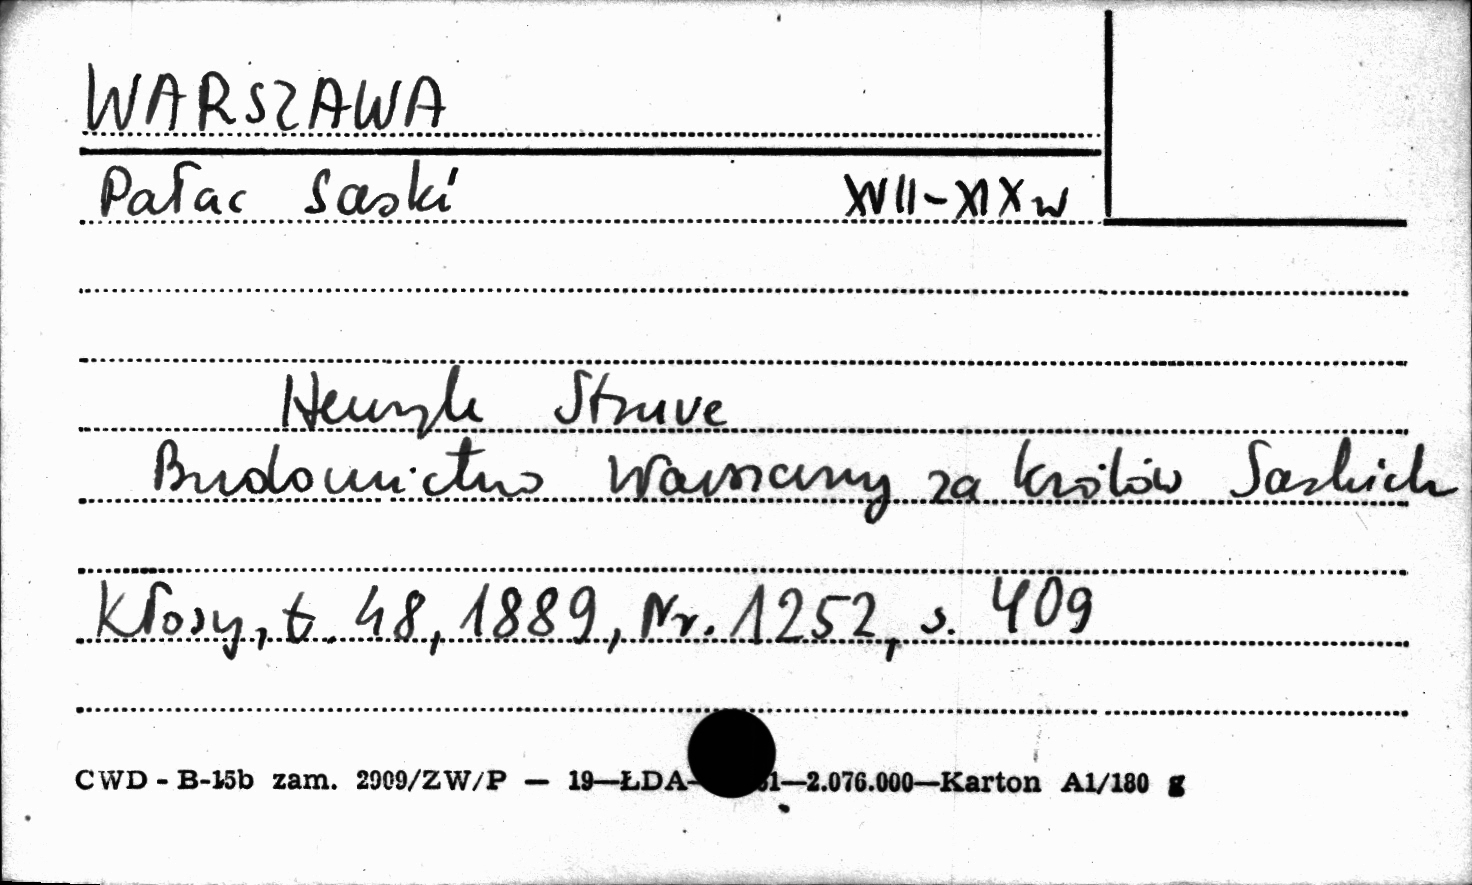 WARSZAWA
Pałac Saski XVII-XIX w
Henryk Struve
Budownictwo Warszawy za królów Saskich
Kłosy, t. 48, 1889, Nr. 1252, s. 409
CWD - B-15b zam. 2909/ZW/P — 19—ŁDA- 1—2.076.000—Karton A1/180 g